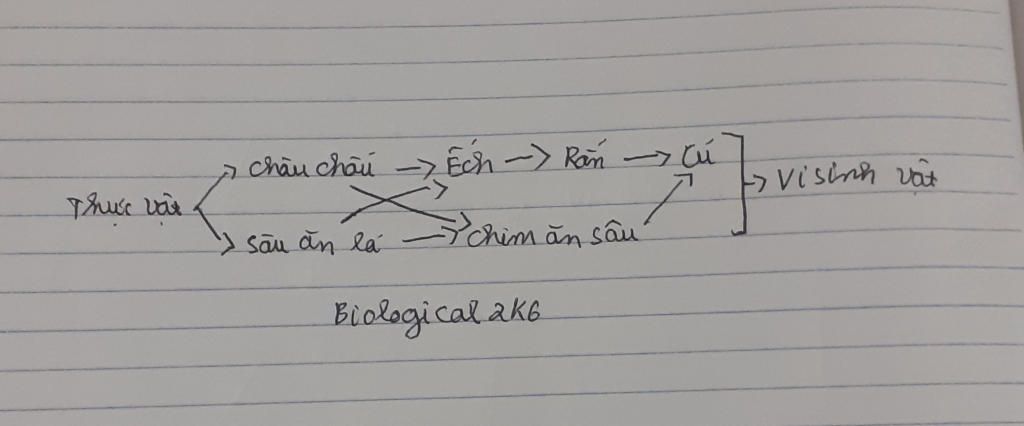 châu chấu → Ếch → Rắn → Cú
Thực vật → Vi sinh vật
Sâu ăn lá → Chim ăn sâu
Biological 2K6